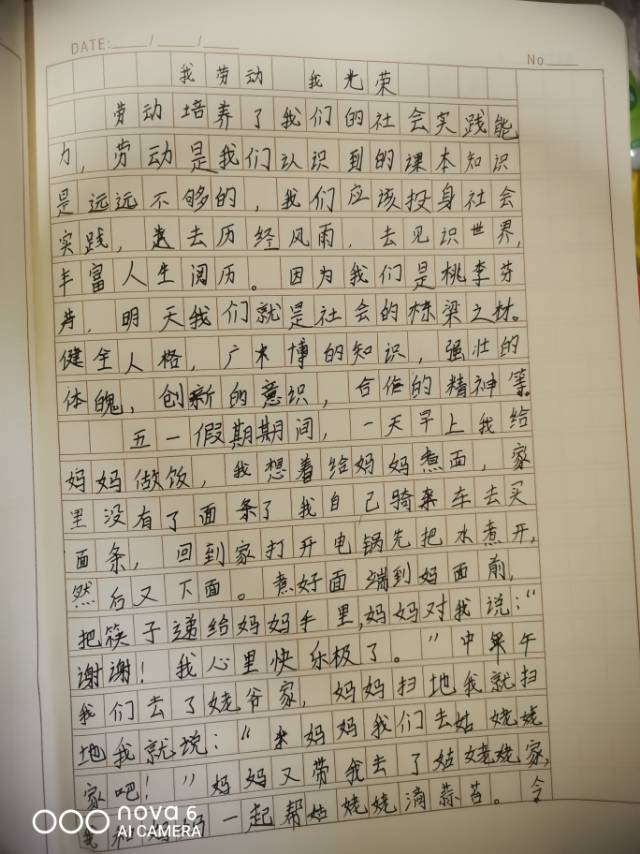 DATE: / /
No
我劳动 我光荣
劳动培养了我们的社会实践能
力，劳动是我们认识到的课本知识
是远远不够的，我们应该投身社会
实践，去历经风雨，去见识世界，
丰富人生阅历。因为我们是桃李芬
芳，明天我们就是社会的栋梁之材。
健全人格，广木博的知识，强壮的
体魄，创新的意识，合作的精神等。
五一假期期间，一天早上我给
妈妈做饭，我想着给妈妈煮面，家
里没有了面条了我自己骑乘车去买
面条，回到家打开电锅先把水煮开，
然后又下面。煮好面端到妈面前，
把筷子递给妈妈手里，妈妈对我说：“
谢谢！我心里快乐极了。”中午
我们去了姥爷家，妈妈扫地我就扫
地我就说：“来妈妈我们去姑姥姥
家吧！”妈妈又带我去了姑姥姥家，
我和妈妈一起帮姑姥姥滴蒜苔。令
nova 6
AI CAMERA